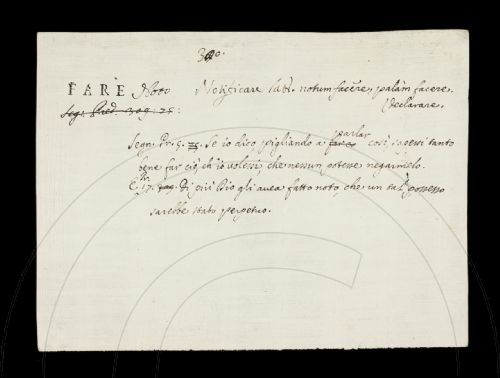 FARE Noto Notificare Lat. notum facere, palam facere.
Declarare.
Segn. Pred. 309. 28:
Segn: Pr. 9. Se io dico pigliando a parlar così, sapessi tanto
bene far ciò, ch'io volessi, che nessun potesse negarmelo.
E 17. Di più Dio gli avea fatto noto, che un tal possesso
sarebbe stato perpetuo.